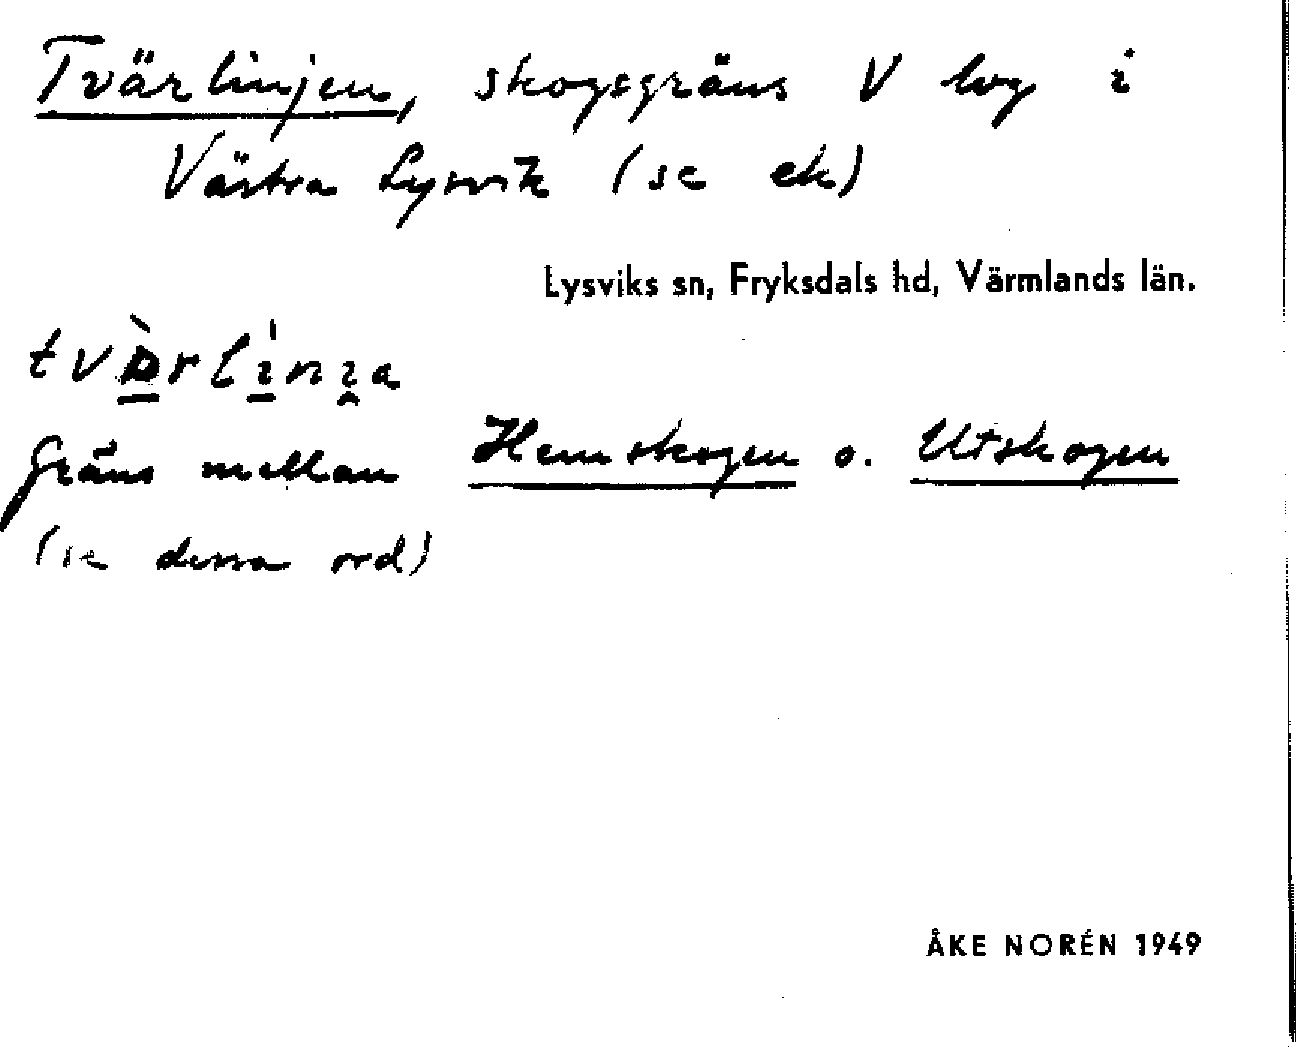 Tvärlinjen, skogsgräns V log i
Västra Lysvik (se ek)
Lysviks sn, Fryksdals hd, Värmlands län.
Gräns mellan Hemskogen o. Utskogen
(se dessa ord)
ÅKE NORÉN 1949